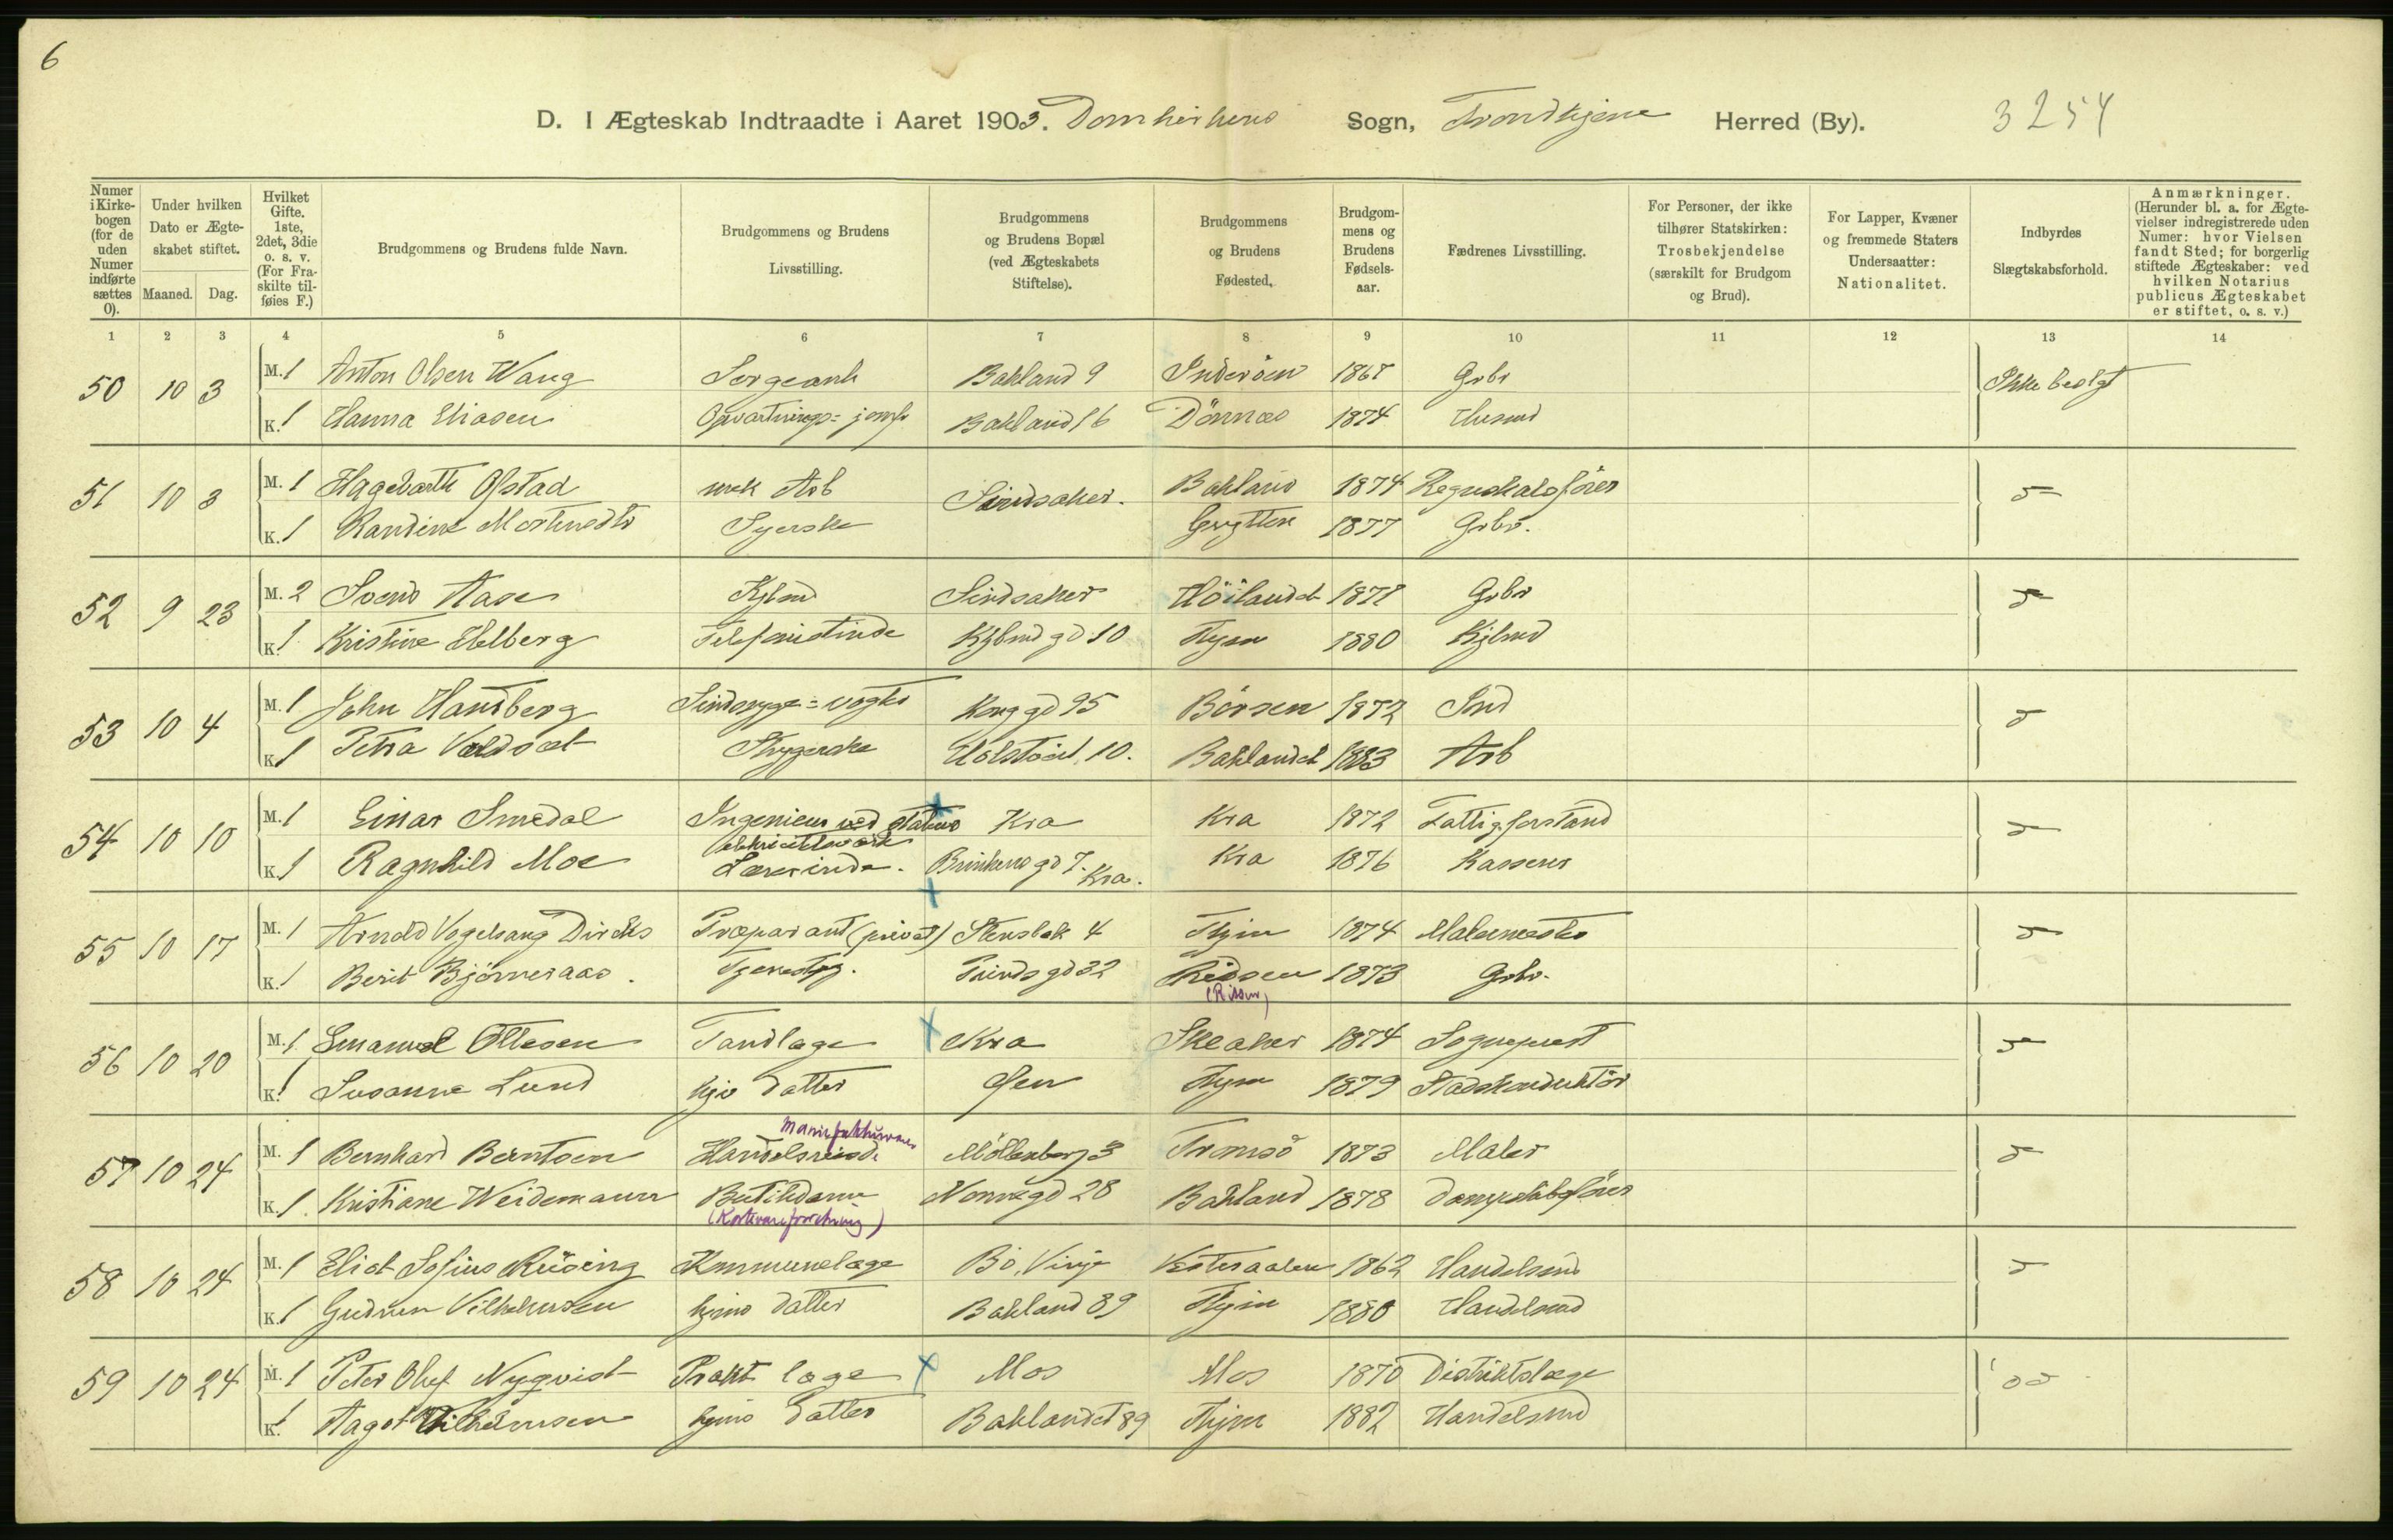 6
D. I Ægteskab Indtraadte i Aaret 1903. Domkirkens Sogn, Trondhjems Herred (By). 3254
Numer i Kirkebogen (for de uden Numer indførte sættes 0).
Under hvilken Dato er Ægteskabet stiftet. Maaned. Dag.
Hvilket Gifte. 1ste, 2det, 3die o. s. v. (For Fraskilte tilføies F.)
Brudgommens og Brudens fulde Navn.
Brudgommens og Brudens Livsstilling.
Brudgommens og Brudens Bopæl (ved Ægteskabets Stiftelse).
Brudgommens og Brudens Fødested.
Brudgommens og Brudens Fødselsaar.
Fædrenes Livsstilling.
For Personer, der ikke tilhører Statskirken: Trosbekjendelse (særskilt for Brudgom og Brud).
For Lapper, Kvæner og fremmede Staters Undersaatter: Nationalitet.
Indbyrdes Slægtskabsforhold.
Anmærkninger. (Herunder bl. a. for Ægtevielser indregistrerede uden Numer: hvor Vielsen fandt Sted; for borgerlig stiftede Ægteskaber: ved hvilken Notarius publicus Ægteskabet er stiftet, o. s. v.)
1 2 3 4 5 6 7 8 9 10 11 12 13 14
50 10 3 M. 1 Anton Olsen Wang Sergeant Bakland 9 Inderöen 1867 Gbr Ikke besl.gt
K. 1 Hanna Eliasen Opvartnings=jomfr Bakland 16 Dönnæs 1874 Husmd
51 10 3 M. 1 Hagebarth Ofstad mek Arb Sindsaker. Bakland 1874 Regnskabsförer
K. 1 Randine Mortensdtr Syerske Grytten 1877 Gbr.
52 9 23 M. 2 Svend Aase Kjbmd Sindsaker Höilandet 1871 Gbr
K. 1 Kristine Helberg Telefonistinde Kjbmd gd 10 Thjem 1880 Kjbmd
53 10 4 M. 1 John Handberg Sindssyge=vogter Kong gd 95 Börsen 1872 Smd
K. 1 Petra Valdset Strygerske Ulstad 10. Baklandet 1883 Arb
54 10 10 M. 1 Einar Smedal Ingeniør ved statens Kra Kra 1872 Fattigforstand
K. 1 Ragnhild Moe Lærerinde. Brinkens gd 7. Kra. Kra 1876 Kasserer
55 10 17 M. 1 Arnold Vogelsang Dircks Præparant (privat) Stensbak 4 Thjem 1874 Malermester
K. 1 Berit Björneraas. Tjenestpg. Prinds gd 32 Ridsen 1873 Gbr.
(Rissen)
56 10 20 M. 1 Emanuel Ottesen Tandlæge Kra Skeaker 1874 Sogneprest
K. 1 Susanne Lund hjv datter Öen Thjem 1879 Stadskonduktör
Manufakturvarer
57 10 24 M. 1 Bernhard Berntsen Handelsreisde Möllenberg 3 Tromsö 1873 Maler
K. 1 Kristiane Weidemann Butikdame Nonnegd 28 Bakland 1878 dampskibsförer
(Kortevareforretning)
58 10 24 M. 1 Eliot Sofus Rüsing Kommunelæge Bö, Vinje Vesteraalen 1862 Handelsmd
K. 1 Gudrun Vilhelmsen hjms datter Bakland 89 Thjem 1880 Handelsmd
59 10 24 M. 1 Peter Oluf Nyqvist Prakt læge Mos Mos 1870 Distriktslæge
K. 1 Aagot Vilhelmsen hjms datter Baklandet 89 Thjem 1882 Handelsmd